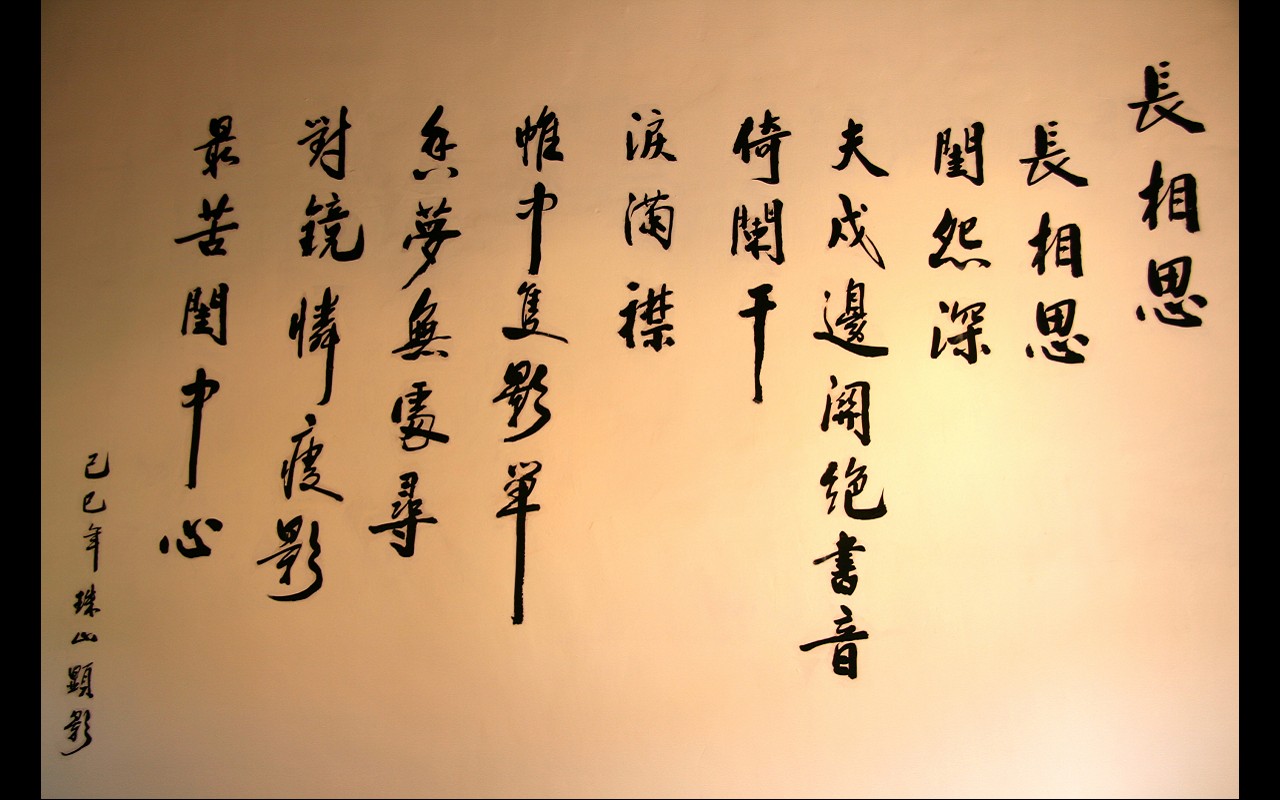 長相思
長相思
閨怨深
夫戍邊關絕書音
倚闌干
淚滿襟
帷中隻影單
魚夢無處尋
對鏡憐瘦影
最苦閨中心
己巳年珠山顯影